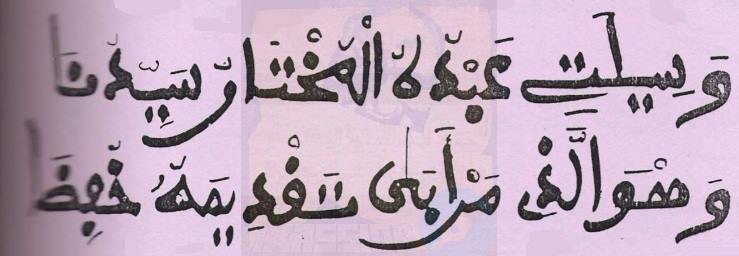 وَسِيلَتِي عَبْدُهُ الْمُخْتَارُ سَيِّدُنَا
وَهْوَ الَّذِي مَنْ أَبَى تَقْدِيمَهُ خُفِضَا